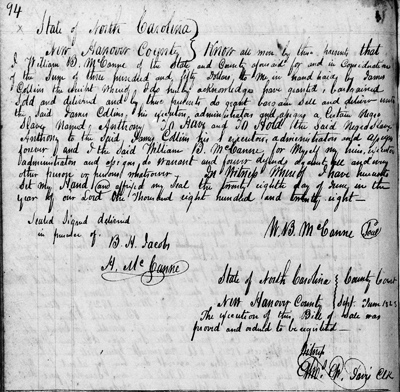 94
State of North Carolina
New Hanover County } Know all men by these presents that
I William B. McCanne of the State and County aforesaid for and in Consideration
of the Sum of three hundred and fifty Dollars, to Me in hand paid by James
Collins the receipt whereof I do hereby acknowledge have granted, bargained
Sold and delivered and by these presents do grant bargain Sell and deliver unto
the Said James Collins, his executors, administrators and assigns a Certain Negro
Slave Named Anthony To Have and To Hold the Said Negro Slave
Anthony to the Said James Collins his executors, administrators and assigns
forever, and I the Said William B. McCanne, for Myself my heirs, executors
administrators and assigns, do warrant and forever defend against all and every
other person or persons whatsoever In Witness Whereof I have hereunto
Set my Hand and affixed my Seal the twenty eighth day of June, in the
year of our Lord One Thousand eight hundred and twenty eight
Sealed Signed delivered
in presence of
W. B. McCanne Seal
B. H. Jacobs
H. McCanne
State of North Carolina } County Court
New Hanover County } Sept. Term
The execution of this Bill of Sale was
proved and ordered to be registered
Witness
W. Davis Clk